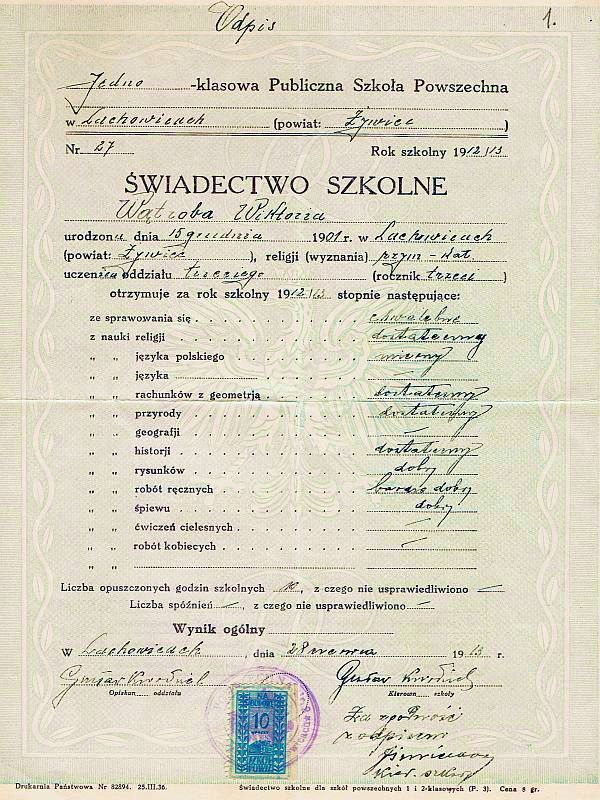 Odpis 1.
Jedno -klasowa Publiczna Szkoła Powszechna
w Lachowicach (powiat: Żywiec )
Nr. 27 Rok szkolny 1912/13
ŚWIADECTWO SZKOLNE
Wątroba Wiktoria
urodzona dnia 15 grudnia 1901 r. w Lachowicach
(powiat: Żywiec ), religii (wyznania) rzym-kat.
oddziału trzeciego (rocznik trzeci )
otrzymuje za rok szkolny 1912/13 stopnie następujące:
ze sprawowania się chwalebne
z nauki religii dostateczny
„ „ języka polskiego mierny
„ „ języka
„ „ rachunków z geometrją dostateczny
„ „ przyrody dostateczny
„ „ geografji —
„ „ historji dostateczny
„ „ rysunków dobry
„ „ robót ręcznych bardzo dobry
„ „ śpiewu dobry
„ „ ćwiczeń cielesnych —
„ „ robót kobiecych —
„ „
Liczba opuszczonych godzin szkolnych 10, z czego nie usprawiedliwiono —
Liczba spóźnień —, z czego nie usprawiedliwiono —
Wynik ogólny
W Lachowicach, dnia 28 czerwca 1913 r.
Gustaw Gustaw
Opiekun oddziału Kierown. szkoły
10
Za zgodność
z odpisem
Kier. szkoły
Drukarnia Państwowa Nr 82894. 25.III.36. Świadectwo szkolne dla szkół powszechnych 1 i 2-klasowych (P. 3). Cena 8 gr.